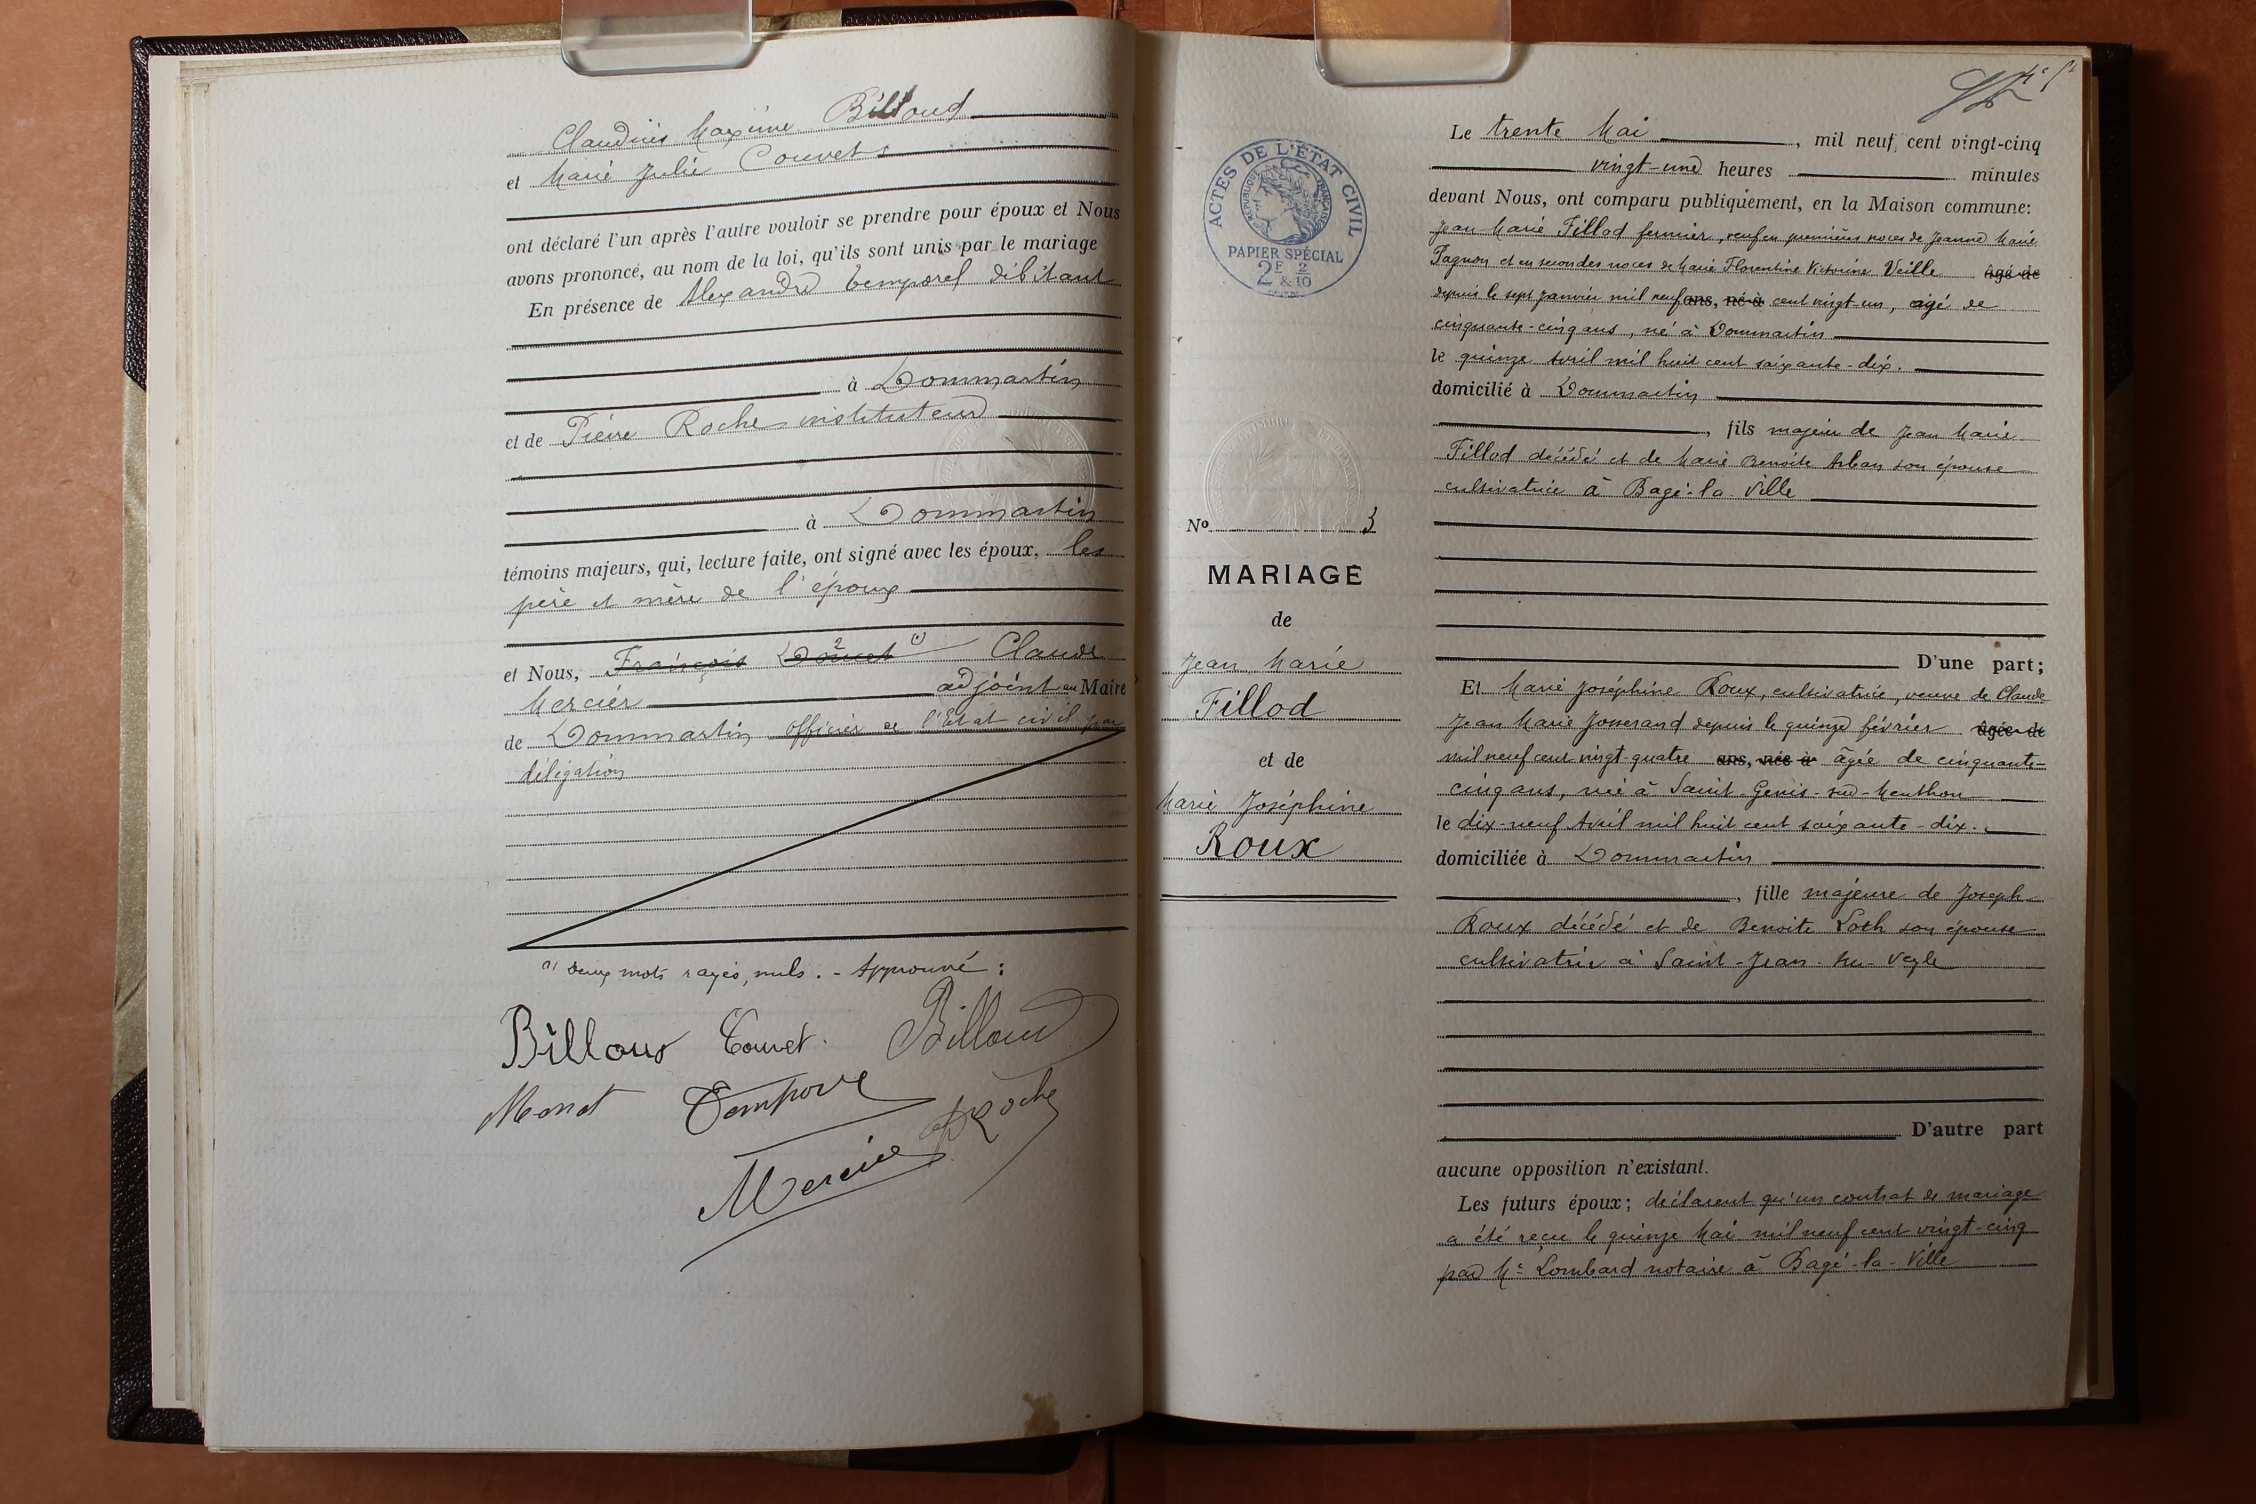 Claudius Maxime Billoud
et Marie Julie Couvet
ont déclaré l'un après l'autre vouloir se prendre pour époux et Nous
avons prononcé, au nom de la loi, qu'ils sont unis par le mariage
En présence de Alexandre Temporel débitant
à Dommartin
et de Pierre Roche instituteur
à Dommartin
témoins majeurs, qui, lecture faite, ont signé avec les époux, les
père et mère de l'époux
et Nous, François Douvet (1) Claude
Mercier adjoint au Maire
de Dommartin officier de l'Etat civil par
délégation
(1) deux mots rayés, nuls. - Approuvé :
Billoud Couvet. Billoud
Monet Temporel
Roche
Mercier
ACTES DE L'ÉTAT CIVIL
RÉPUBLIQUE FRANÇAISE
PAPIER SPÉCIAL
2F & 2/10
No 3
MARIAGE
de
Jean Marie
Fillod
et de
Marie Joséphine
Roux
Le trente Mai, mil neuf cent vingt-cinq
vingt-une heures minutes
devant Nous, ont comparu publiquement, en la Maison commune:
Jean Marie Fillod fermier, veuf en premières noces de Jeanne Marie
Pagnon et en secondes noces de Marie Florentine Victorine Veille âgé de
depuis le sept Janvier mil neuf ans, né à cent vingt-un, âgé de
cinquante-cinq ans, né à Dommartin
le quinze Avril mil huit cent soixante-dix.
domicilié à Dommartin
, fils majeur de Jean Marie
Fillod décédé et de Marie Benoîte Arban son épouse
cultivatrice à Bagé-la-Ville
D'une part;
Et Marie Joséphine Roux, cultivatrice, veuve de Claude
Jean Marie Josserand depuis le quinze février âgée de
mil neuf cent vingt-quatre ans, née à âgée de cinquante-
cinq ans, née à Saint-Genis-sur-Menthon
le dix-neuf Avril mil huit cent soixante-dix.
domiciliée à Dommartin
, fille majeure de Joseph
Roux décédé et de Benoite Loth son épouse
cultivatrice à Saint-Jean-sur-Veyle
D'autre part
aucune opposition n'existant.
Les futurs époux; déclarent qu'un contrat de mariage
a été reçu le quinze Mai mil neuf cent vingt-cinq
par Me Lombard notaire à Bagé-la-Ville